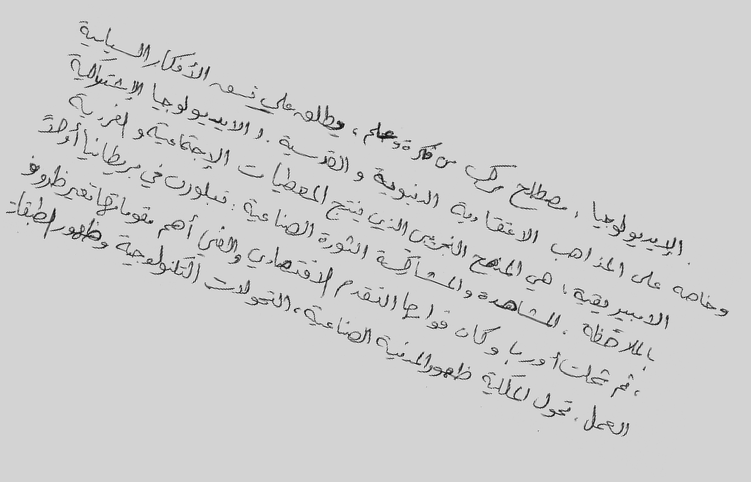 الإيديولوجيا، مصطلح مركب من فكرة وعلم، ويطلق على نسق الأفكار السياسية
وخاصه على المذاهب الاعتقادية الدنيوية والقدسية. والايديولوجيا الإشتراكية
الامبيريقية، هي المنهج التجريبي الذي ينتج المعطيات الإجتماعية والفردية
بالملاحظة، المشاهدة والمشاركة الثورة الصناعية: تبلورت في بريطانيا أولاً
، ثم شملت أوربا وكان قوامها التقدم الاقتصادي والفني أهم مقوماتها تغير ظروف
العمل، تحول الملكية ظهور المدنية الصناعية، التحولات التكنولوجية وظهور الطبقات